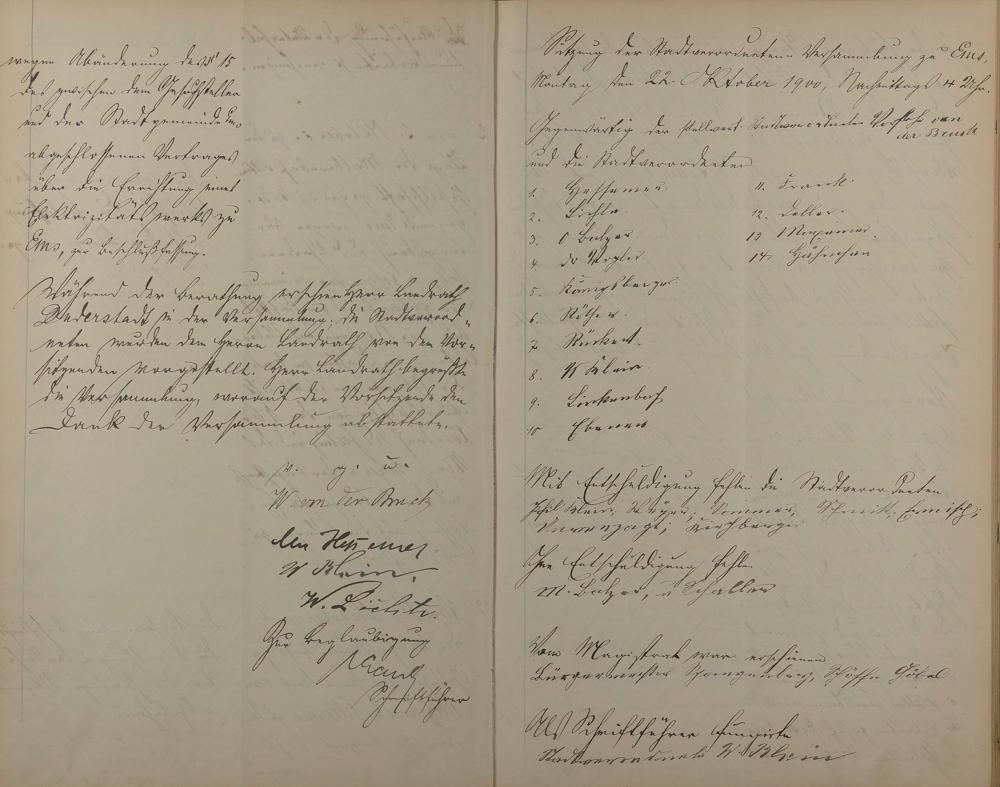 wegen Abänderung des § 15
des zwischen dem Gesuchsteller
und der Stadtgemeinde Ems
abgeschlossenen Vertrages
über die Errichtung eines
Elektrizitätswerks zu
Ems, zur Beschlußfassung.
Während der Berathung erschien Herr Landrath
Duderstadt in der Versammlung; die Stadtverord-
neten wurden dem Herrn Landrath von dem Vor-
sitzenden vorgestellt. Herr Landrath begrüßte
die Versammlung, worauf der Vorsitzende den
Dank der Versammlung abstattete.
v. g. u.
W von der Bruck
Hessemer
W Klein.
W. Bichte
Zur Beglaubigung
Schriftführer
Sitzung der Stadtverordneten Versammlung zu Ems,
Montag, den 22. Oktober 1900, Nachmittags 4 Uhr.
Gegenwärtig der stellvert. Stadtverordneten Vorsteher von
der Bruck
und die Stadtverordneten
1. Hessemer
2.
3. O Balzer
4. Dr Vogler
5. Königsberger
6. Röther
7. Rückert.
8. W Klein.
9. Linkenbach
10
11. Franck.
12.
13
14.
Mit Entschuldigung fehlen die Stadtverordneten
Phil Klein, Sommer, Schmitt, Ermisch,
Kirchberger
Ohne Entschuldigung fehlen
M. Balzer, u Schaller
Vom Magistrat war erschienen
Bürgermeister Spangenberg, Schöffe Göbel
Als Schriftführer fungirte
Stadtverordneter W. Klein